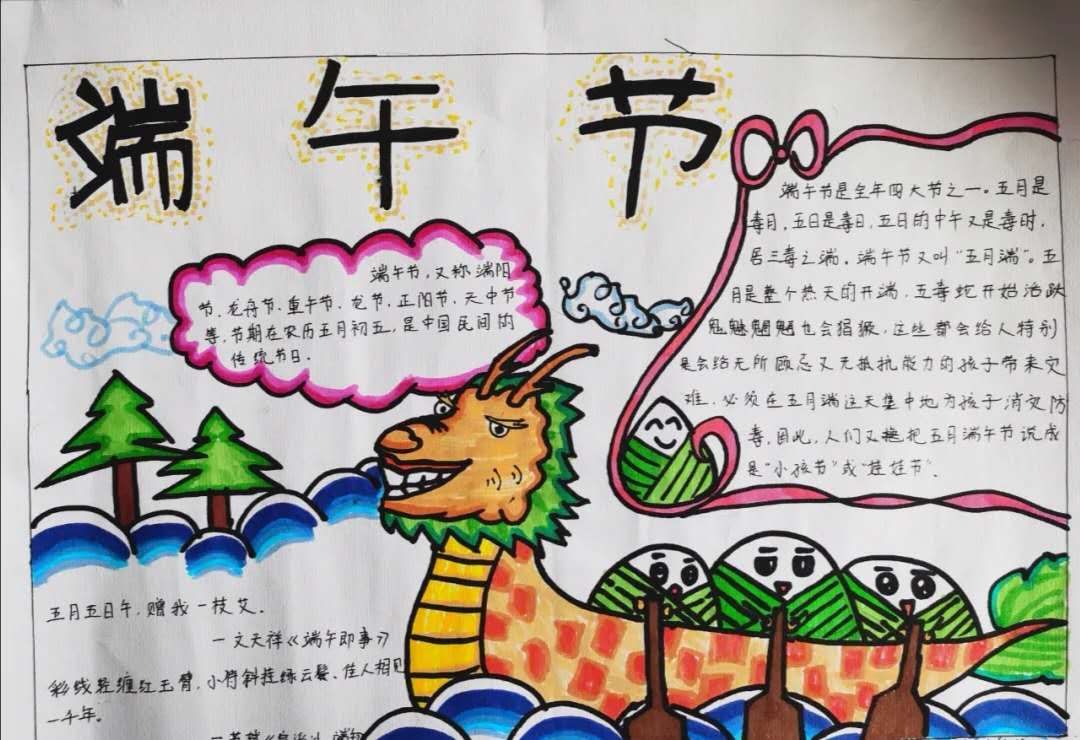 端午节
端午节,又称端阳
节、龙舟节、重午节、龙节、正阳节、天中节
等,节期在农历五月初五,是中国民间的
传统节日。
端午节是全年四大节之一。五月是
毒月,五日是毒日,五日的中午又是毒时,
居三毒之端。端午节又叫“五月端”。五
月是整个热天的开端,五毒蛇开始活跃
魑魅魍魉也会猖獗,这些都会给人特别
是会给无所顾忌又无抵抗能力的孩子带来灾
难,必须在五月端这天集中地为孩子消灾防
毒,因此,人们又把五月端午节说成
是“小孩节”或“娃娃节”.
五月五日午,赠我一枝艾.
一文天祥《端午即事》
彩线轻缠红玉臂,小符斜挂绿云鬟.佳人相见
一千年。